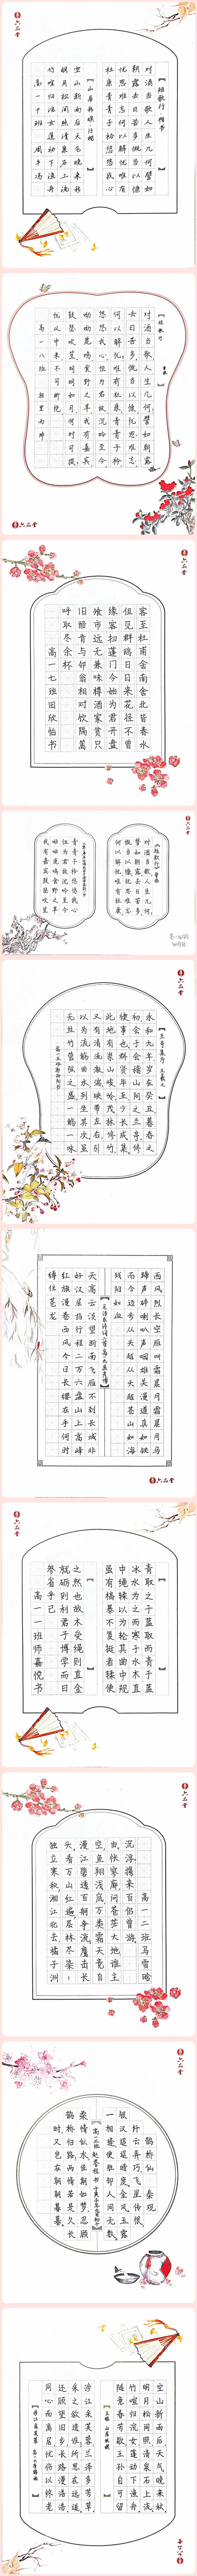 六品堂
【短歌行·楷书】
对酒当歌人生几何譬如
朝露去日苦多慨当以慷
忧思难忘何以解忧唯有
杜康青青子衿悠悠我心
【山居秋暝·行楷】
空山新雨后天气晚来秋
明月松间照清泉石上流
竹喧归浣女莲动下渔舟
高一十班
【短歌行】
对酒当歌人生几何譬如朝露
去日苦多慨当以慷忧思难忘
何以解忧唯有杜康青青子衿
悠悠我心但为君故沉吟至今
呦呦鹿鸣食野之苹我有嘉宾
鼓瑟吹笙明明如月何时可掇
忧从中来不可断绝
高一八班
六品堂
六品堂
客至杜甫舍南舍北皆春水
但见群鸥日日来花径不曾
缘客扫蓬门今始为君开盘
飧市远无兼味樽酒家贫只
旧醅肯与邻翁相对饮隔篱
呼取尽余杯
高一七班田欣怡书
六品堂
《短歌行》曹操
对酒当歌,人生几何,
譬如朝露,去日苦多。
慨当以慷,忧思难忘。
何以解忧,唯有杜康。
青青子衿悠悠我心
但为君故沉吟至今
呦呦鹿鸣食野之苹
我有嘉宾鼓瑟吹笙
六品堂
【兰亭集序 王羲之】
永和九年岁在癸丑暮春之
初会于会稽山阴之兰亭修
禊事也群贤毕至少长咸集
此地有崇山峻岭茂林修竹
又有清流激湍映带左右引
以为流觞曲水列坐其次虽
无丝竹管弦之盛一觞一咏
西风烈长空雁叫霜晨月霜晨月马
蹄声碎喇叭声咽雄关漫道真如铁
而今迈步从头越从头越苍山如海
残阳如血
【毛泽东诗词二首
天高云淡望断南飞雁不到长城非
好汉屈指行程二万六盘山上高峰
红旗漫卷西风今日长缨在手何时
缚住苍龙
六品堂
六品堂
青取之于蓝而青于蓝
冰水为之而寒于水木直
中绳輮以为轮其曲中规
虽有槁暴不复挺者輮使
之然也故木受绳则直金
就砺则利君子博学而日
参省乎己
高一一班师嘉悦书
六品堂
独立寒秋湘江北去橘子洲
头看万山红遍层林尽染
漫江碧透百舸争流鹰击长
空鱼翔浅底万类霜天竞自
由怅寥廓问苍茫大地谁主
沉浮携来百侣曾游
高一二班马雪晗
六品堂
鹊桥仙 秦观
纤云弄巧飞星传恨
银汉迢迢暗度金风玉露
一相逢便胜却人间无数
柔情似水佳期如梦忍顾
鹊桥归路两情若是久长
时又岂在朝朝暮暮
【王维 山居秋暝】
空山新雨后天气晚来秋
明月松间照清泉石上流
竹喧归浣女莲动下渔舟
随意春芳歇王孙自可留
涉江采芙蓉兰泽多芳草
采之欲遗谁所思在远道
还顾望旧乡长路漫浩浩
同心而离居忧伤以终老
【涉江采芙蓉
六品堂